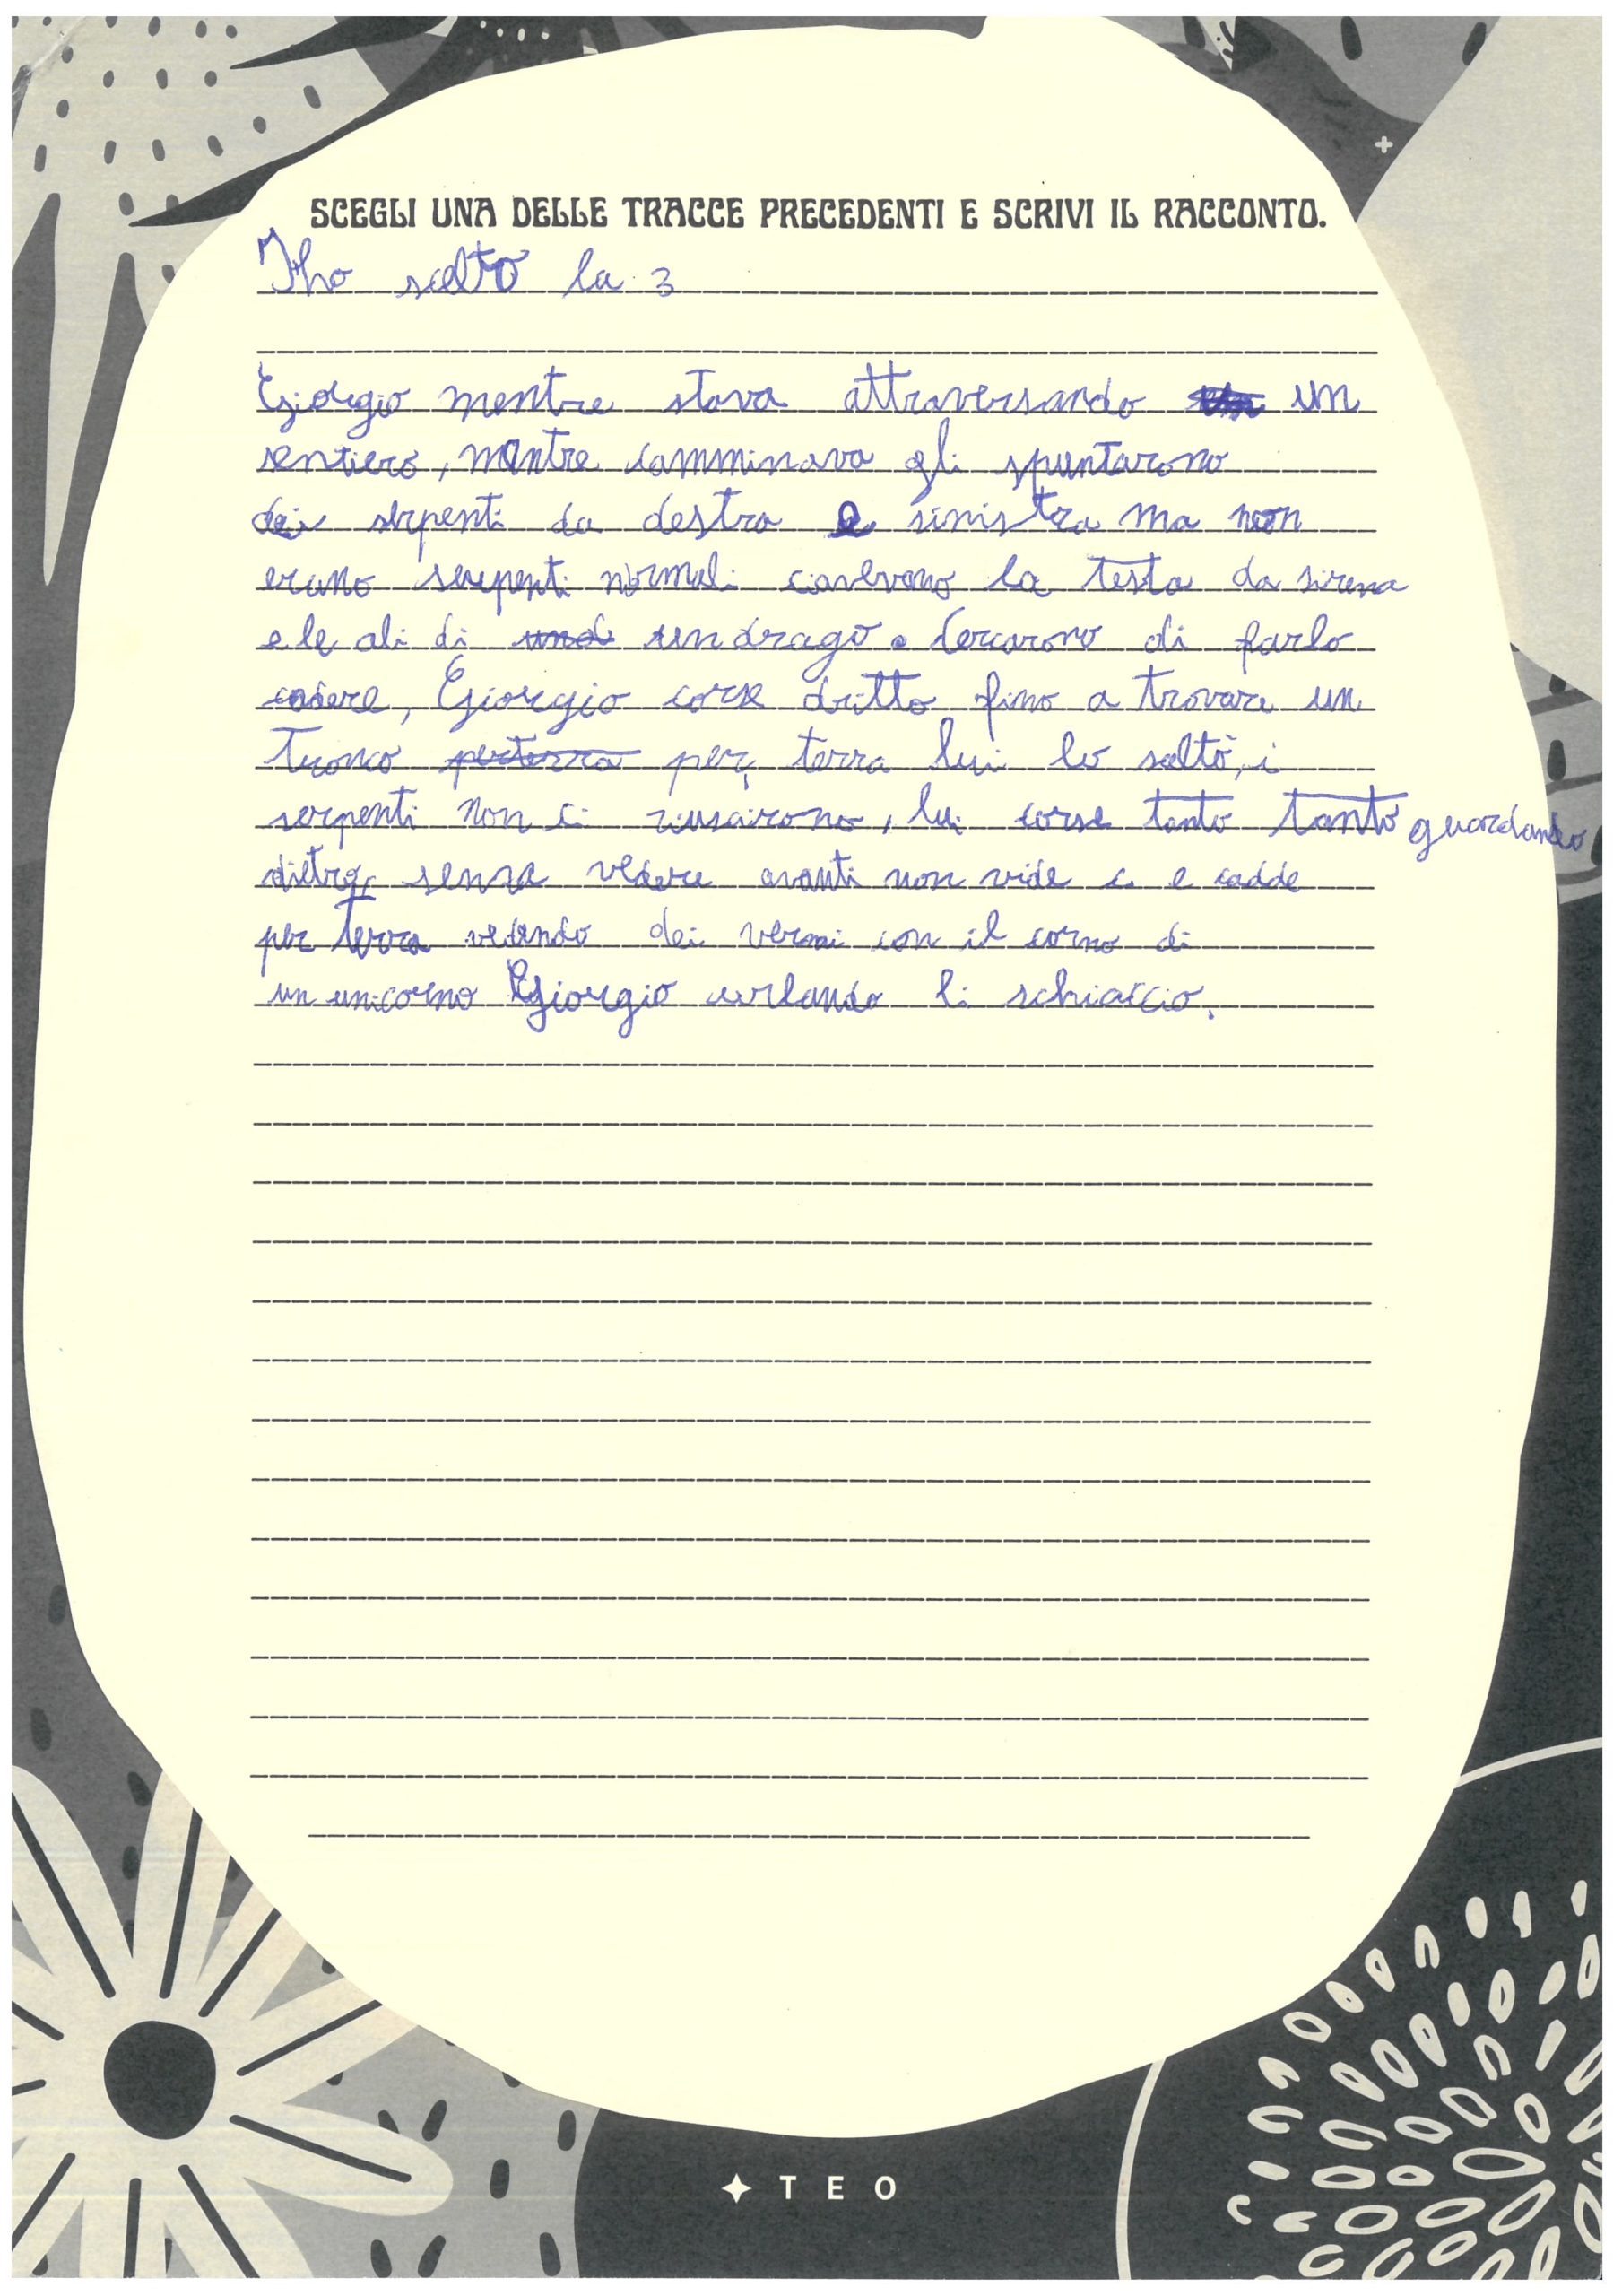 SCEGLI UNA DELLE TRACCE PRECEDENTI E SCRIVI IL RACCONTO.
Iho scelto la 3
Giorgio mentre stava attraversando un
sentiero, mentre camminava gli spuntarono
dei serpenti da destra e sinistra ma non
erano serpenti normali ciavevano la testa da sirena
e le ali di un drago. Cercarono di farlo
cadere, Giorgio corse dritto fino a trovare un
tronco perterra per terra lui lo saltò, i
serpenti non ci riuscirono, lui corse tanto tanto guardando
dietro, senza vedere avanti non vide c e cadde
per terra vedendo dei vermi con il corno di
un unicorno Giorgio urlando li schiaccio.
TEO